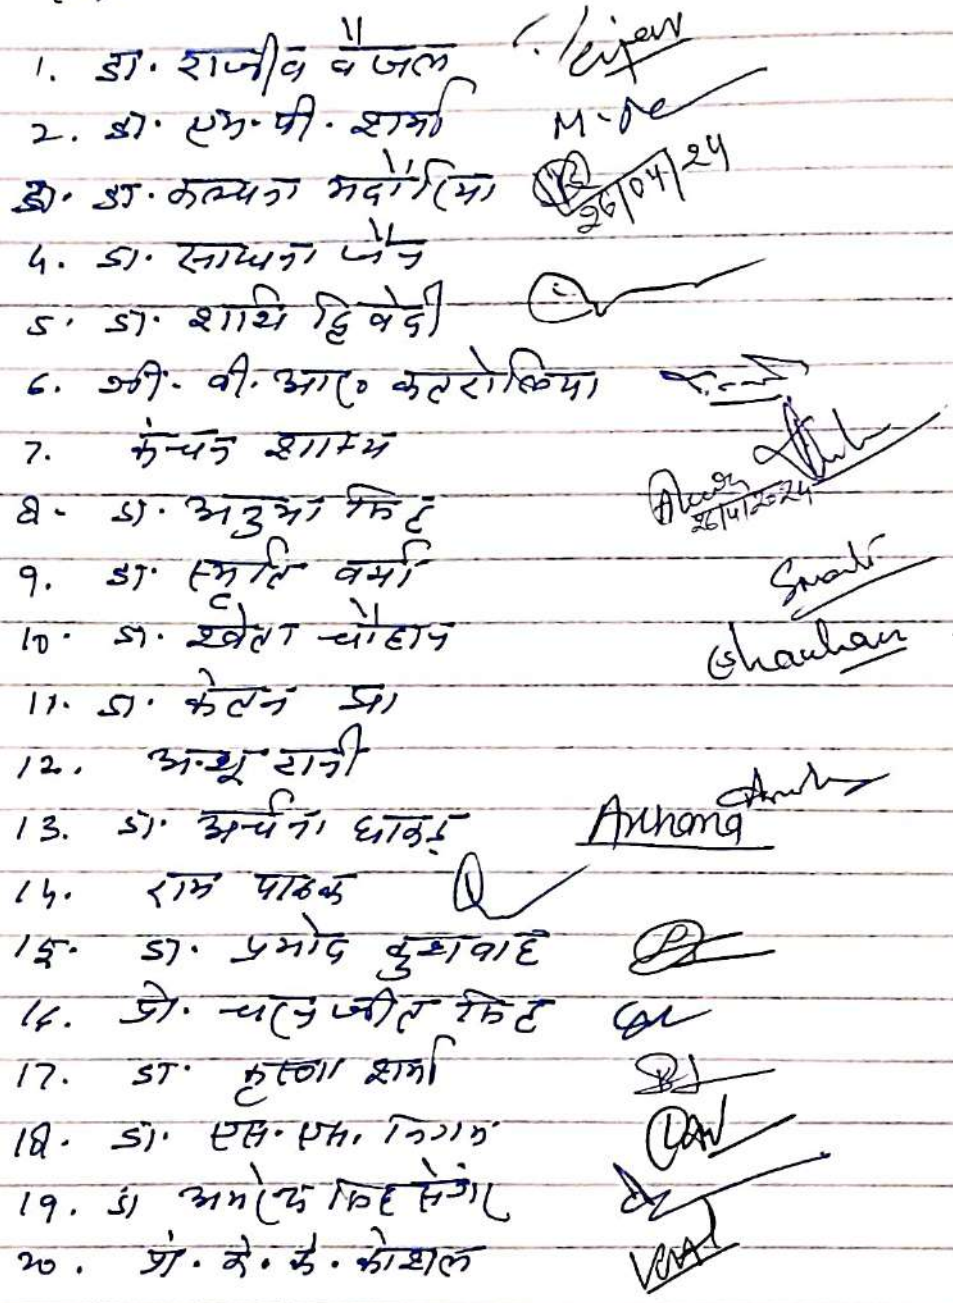 1. डा. राजीव वैजल
2. डा. एम. पी. शर्मा
3. डा. कल्पना भदौरिया 26/04/24
4. डा. साधना जैन
5. डा. शशि द्विवेदी
6. श्री. वी. आर० कतरोलिया
7. कंचन शाक्य
8. डा. अनुभा सिंह 26/4/2024
9. डा. स्मृति वर्मा Smriti
10. डा. श्वेता चौहान Schauhan
11. डा. केतन झा
12. अन्शू रानी
13. डा. अर्चना धाकड़ Archana
14. राम पाठक
15. डा. प्रमोद कुशवाह
16. प्रो. चरनजीत सिंह
17. डा. कृष्णा शर्मा
18. डा. एस. एम. निगम
19. डा सिंह सेंगर
20. प्रो. के. के. कोशल